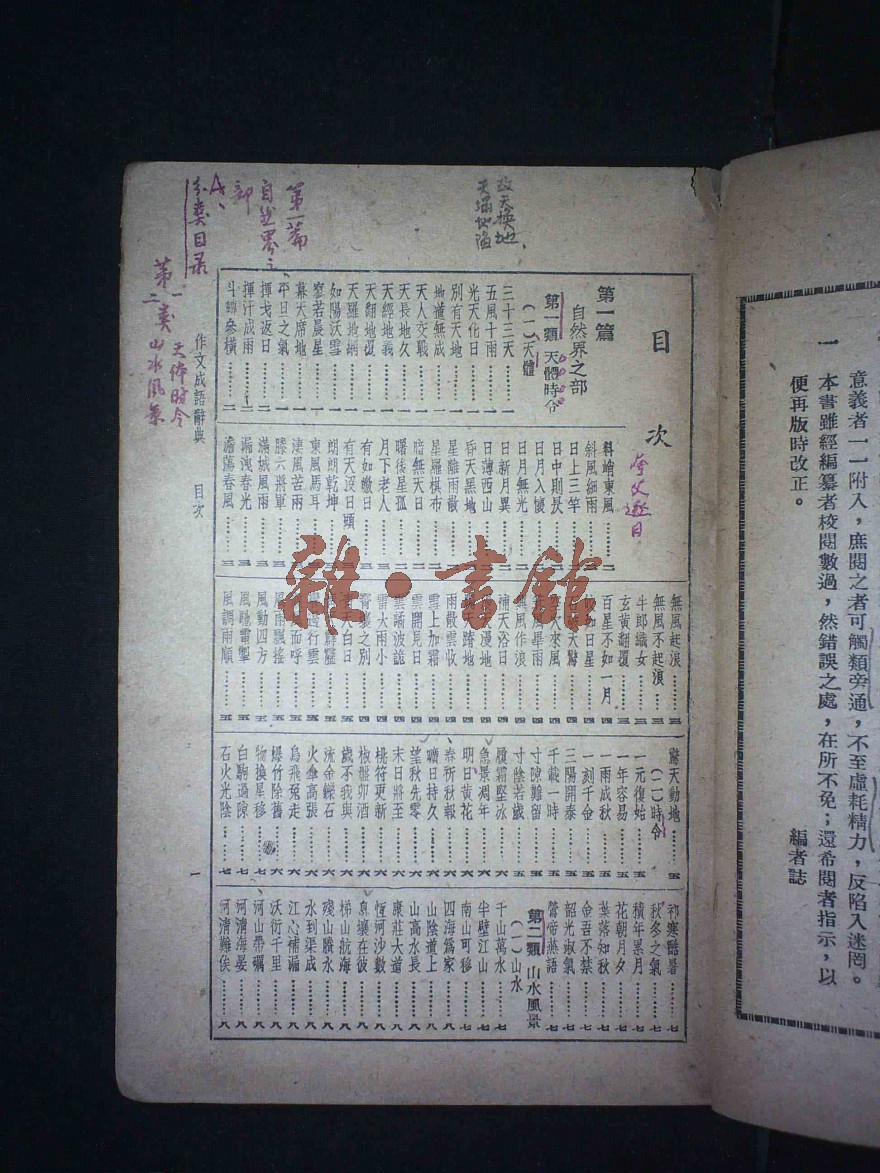 意義者一一附入，庶閱之者可觸類旁通，不至虛耗精力，反陷入迷罔。
一 本書雖經編纂者校閱數過，然錯誤之處，在所不免；還希閱者指示，以
便再版時改正。
編者誌
目次
第一篇
自然界之部
第一類 天體時令
(一)天體
三十三天………一
五風十雨………一
光天化日………一
別有天地………一
地道無成………一
天人交戰………一
天長地久………一
天經地義………一
天翻地覆………一
天羅地網………一
如陽沃雪………一
寥若晨星………一
幕天席地………一
平旦之氣………二
揮戈返日………二
揮汗成雨………二
斗轉參橫………二
料峭東風………二
斜風細雨………二
日上三竿………二
日中則昃………二
日月入懷………二
日月無光………二
日新月異………二
日薄西山………二
昏天黑地………二
星離雨散………二
星羅棋布………二
暗無天日………二
曙後星孤………二
月下老人………三
有如皦日………三
有天沒日頭………三
朗朗乾坤………三
東風馬耳………三
淒風苦雨………三
滕六將軍………三
滿城風雨………三
漏洩春光………三
澹蕩春風………三
無風起浪………三
無風不起浪………三
牛郎織女………三
玄黃翻覆………三
百星不如一月………四
補天浴日………四
雨散雲收………四
雪上加霜………四
雲開見日………四
雲譎波詭………四
雷大雨小………四
風雨飄搖………五
風動四方………五
風馳電掣………五
風調雨順………五
驚天動地………五
(二)時令
一元復始………五
一年容易………五
一雨成秋………五
一刻千金………五
三陽開泰………五
千載一時………五
寸陰若歲………六
履霜堅冰………六
急景凋年………六
明日黃花………六
春祈秋報………六
曠日持久………六
望秋先零………六
末日將至………六
桃符更新………六
椒盤卯酒………六
歲不我與………六
流金鑠石………六
火傘高張………六
烏飛兔走………六
爆竹除舊………六
物換星移………七
白駒過隙………七
石火光陰………七
祁寒酷暑………七
秋冬之氣………七
積年累月………七
花朝月夕………七
葉落知秋………七
金吾不禁………七
韶光淑氣………七
鶯啼燕語………七
第二類 山水風景
(一)山水
千山萬水………七
半壁江山………七
南山可移………七
四海爲家………八
山陰道上………八
山高水長………八
康莊大道………八
恆河沙數………八
息壤在彼………八
梯山航海………八
殘山賸水………八
水到渠成………八
江心補漏………八
沃衍千里………八
河山帶礪………八
河清海晏………八
河清難俟………八
作文成語辭典 目次 一
改天換地
天塌地陷
夸父逐日
第一篇
自然界之
部
A、
分類目录
第一类 天体时令
二 山水风景
雜·書館